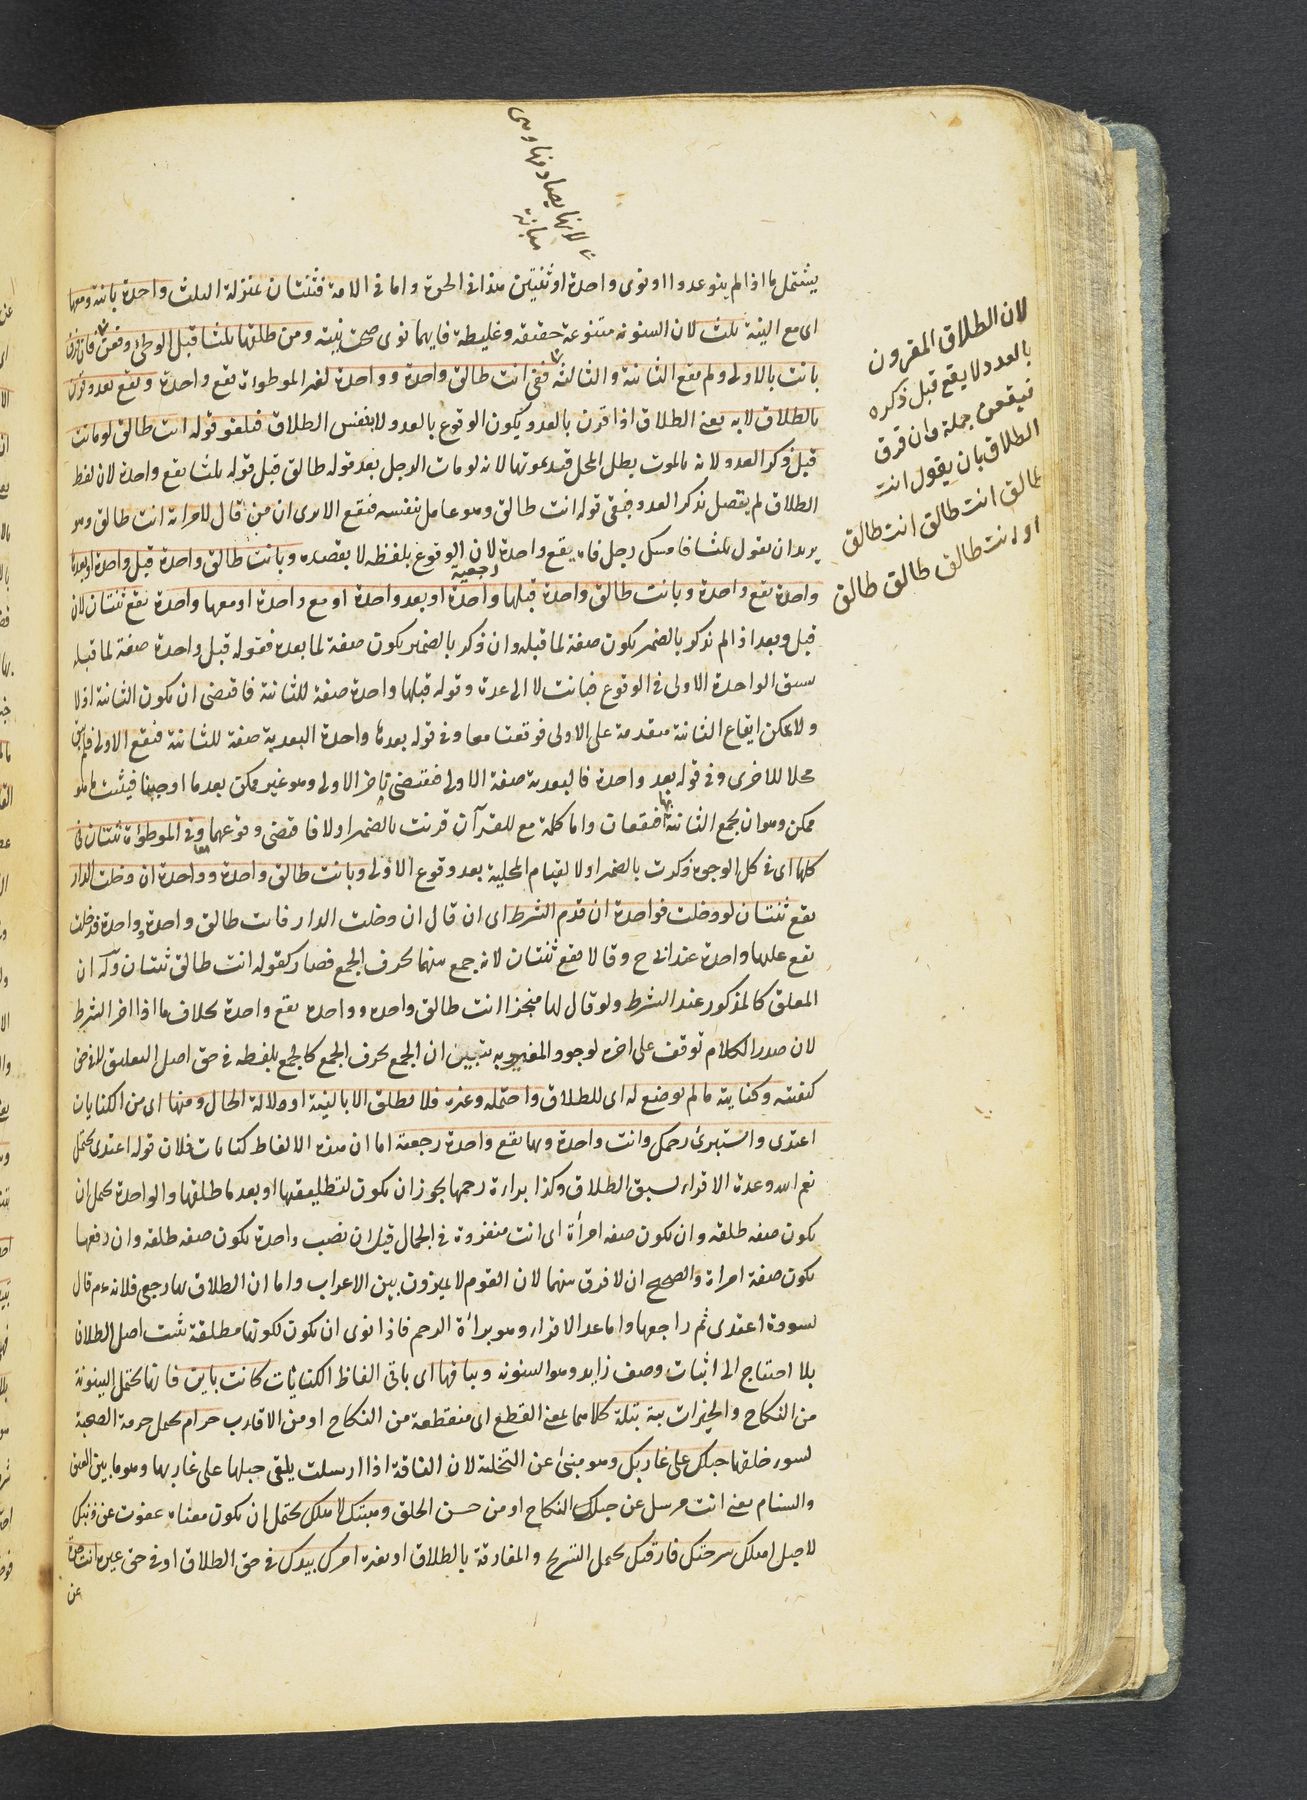 يشتمل ما اذا لم ينو عددا او نوى واحدة او ثنتين هذا في الحرة واما في الامة فثنتان بمنزلة الثلث واحدة بائنة ومعها
اى مع النية ثلث لان البينونة متنوعة حقيقة وغليظة فايهما نوى صحت نيته ومن طلقها ثلثا قبل الوطئ وقعن فان فرق
بانت بالاولى ولم تقع الثانية والثالثة ففى انت طالق واحدة وواحدة لغير الموطوءة تقع واحدة ويقع بعدد قرن
بالطلاق لا به يعنى الطلاق اذا قرن بالعدد يكون الوقوع بالعدد لا بنفس الطلاق فيلغو قوله انت طالق لو ماتت
قبل ذكر العدد لانه بالموت يبطل المحل قيد بموتها لانه لو مات الرجل بعد قوله طالق قبل قوله ثلثا يقع واحدة لان لفظ
الطلاق لم يتصل بذكر العدد فبقى قوله انت طالق وهو عامل بنفسه فيقع الا يرى ان من قال لامراته انت طالق وهو
يريد ان يقول ثلثا فامسك رجل فاه يقع واحدة رجعية لان الوقوع بلفظه لا بقصده وبانت طالق واحدة قبل واحدة او بعدها
واحدة يقع واحدة وبانت طالق واحدة قبلها واحدة او بعد واحدة او مع واحدة او معها واحدة يقع ثنتان لان
قبل وبعد اذا لم يذكر بالضمير يكون صفة لما قبله وان ذكر بالضمير يكون صفة لما بعده فقوله قبل واحدة صفة لما قبله
سبق الواحدة الاولى في الوقوع فبانت لا الى عدة وقوله قبلها واحدة صفة للثانية فاقتضى ان يكون الثانية اولا
ولا يمكن ايقاع الثانية متقدمة على الاولى فوقعتا معا وفى قوله بعدها واحدة البعدية صفة للثانية فيقع الاولى فلم يبق
محلا للاخرى وفى قوله بعد واحدة فالبعدية صفة الاولى فيقتضى تاخر الاولى وهو غير ممكن بعد ما اوجبها فيثبت ما هو
ممكن وهو ان يجمع الثانية فتقعان واما كلمة مع للقرآن قرنت بالضمير اولا فاقتضى وقوعهما معا وفى الموطوءة ثنتان فى
كلها اى فى كل الوجوه ذكرت بالضمير اولا لقيام المحلية بعد وقوع الاولى وبانت طالق واحدة وواحدة ان دخلت الدار
يقع ثنتان لو دخلت فواحدة ان قدم الشرط اى ان قال ان دخلت الدار فانت طالق واحدة وواحدة فدخلت
يقع عليها واحدة عند ابى ح وقالا يقع ثنتان لانه جمع بينهما بحرف الجمع فصار كقوله انت طالق ثنتان وله ان
المعلق كالمذكور عند الشرط ولو قال لها منجزا انت طالق واحدة وواحدة يقع واحدة بخلاف ما اذا اخر الشرط
لان صدر الكلام توقف على اخره لوجود المغير به يتبين ان الجمع بحرف الجمع كالجمع بلفظه فى حق اصل التعليق لا فى حق
كيفيته وكنايته ما لم يوضع له اى للطلاق واحتمله وغيره فلا تطلق الا بالنية او دلالة الحال ومنها اى من الكنايات
اعتدى واستبرئ رحمك وانت واحدة وبها يقع واحدة رجعية اما ان هذه الالفاظ كنايات فلان قوله اعتدى يحتمل
نعم الله وعدة الاقراء لسبق الطلاق وكذا براءة رحمها يجوز ان يكون لتطليقها او بعد ما طلقها والواحدة يحتمل ان
يكون صفة طلقة وان يكون صفة امرأة اى انت منفردة فى الجمال قيل ان نصب واحدة يكون صفة طلقة وان رفعها
يكون صفة امراة والصحيح ان لا فرق بينهما لان القوم لا يميزون بين الاعراب واما ان الطلاق بها رجعى فلانه عم قال
لسودة اعتدى ثم راجعها واما عد الاقراء وهو براءة الرحم فاذا نوى ان يكون لكونها مطلقة ثبت اصل الطلاق
بلا احتياج الى اثبات وصف زايد وهو البينونة وبباقيها اى باقى الفاظ الكنايات كانت باين فانها يحتمل البينونة
من النكاح والخيرات بتة بتلة كلاهما بمعنى القطع اى منقطعة من النكاح او من الاقارب حرام يحتمل حرمة الصحبة
لسوء خلقها حبلك على غاربك وهو منبئ عن التخلية لان الناقة اذا ارسلت يلقى حبلها على غاربها وهو ما بين العنق
والسنام يعنى انت مرسل عن حبلك النكاح او من حسن الخلق وهبتك لاهلك يحتمل ان يكون معناه عفوت عن ذنبك
لاجل اهلك سرحتك فارقتك يحتمل التسريح والمفارقة بالطلاق او بغيره امرك بيدك فى حق الطلاق او فى حق غيره انت حرة
عن
لان الطلاق المقرون
بالعدد لا يقع قبل ذكره
فيقعن جملة وان فرق
الطلاق بان يقول انت
طالق انت طالق انت طالق
او انت طالق طالق طالق
لانها يصادفها وهى
مباينة